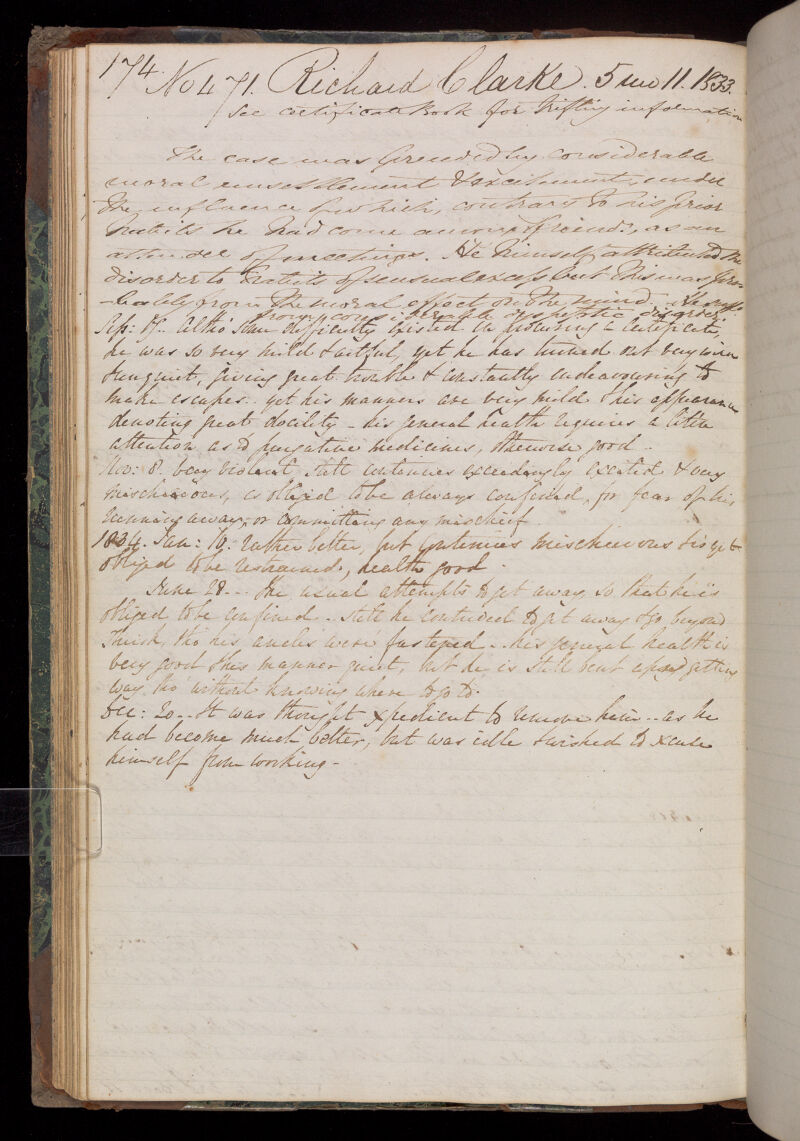 174. No 471. Richard Clarke. 5 mo 11. 1833.
See certificate Book for history information
The case was preceded by considerable
moral unsettlement & excitement, under
the influence of which, contrary to his prior
habits he had come among friends, as an
attender of meetings. He himself attributed the
disorder to habits of sensual excess but this was pro-
-bably from the moral effect on the mind.
from considerable dyspeptic disorder.
Sep: 17. Altho' some difficulty existed in procuring a certificate,
he was so very mild & artful, yet he has turned out very
& unquiet, giving great trouble & constantly endeavouring to
make escapes. yet his manners are very mild & his appearance
denoting great docility - his general health requires a little
attention as to purgative medicines, otherwise good.
Nov: 8. very violent still continues exceedingly excited & very
mischievous, is obliged to be always confined, for fear of his
running away, or committing any mischief.
1834. Jan: 19: rather better, but continues mischievous & is yet
obliged to be restrained, health good.
June 28. The usual attempts to get away, so that he is
obliged to be confined. still he contrived to get away & go beyond
Thirsk, tho' his ancles were fastened. his general health is
very good & his manner quiet, but he is still bent upon getting
way, tho' without knowing where to go to.
Dec: 20. It was thought expedient to remove him - as he
had become much better, but was idle & wished to excuse
himself from working -